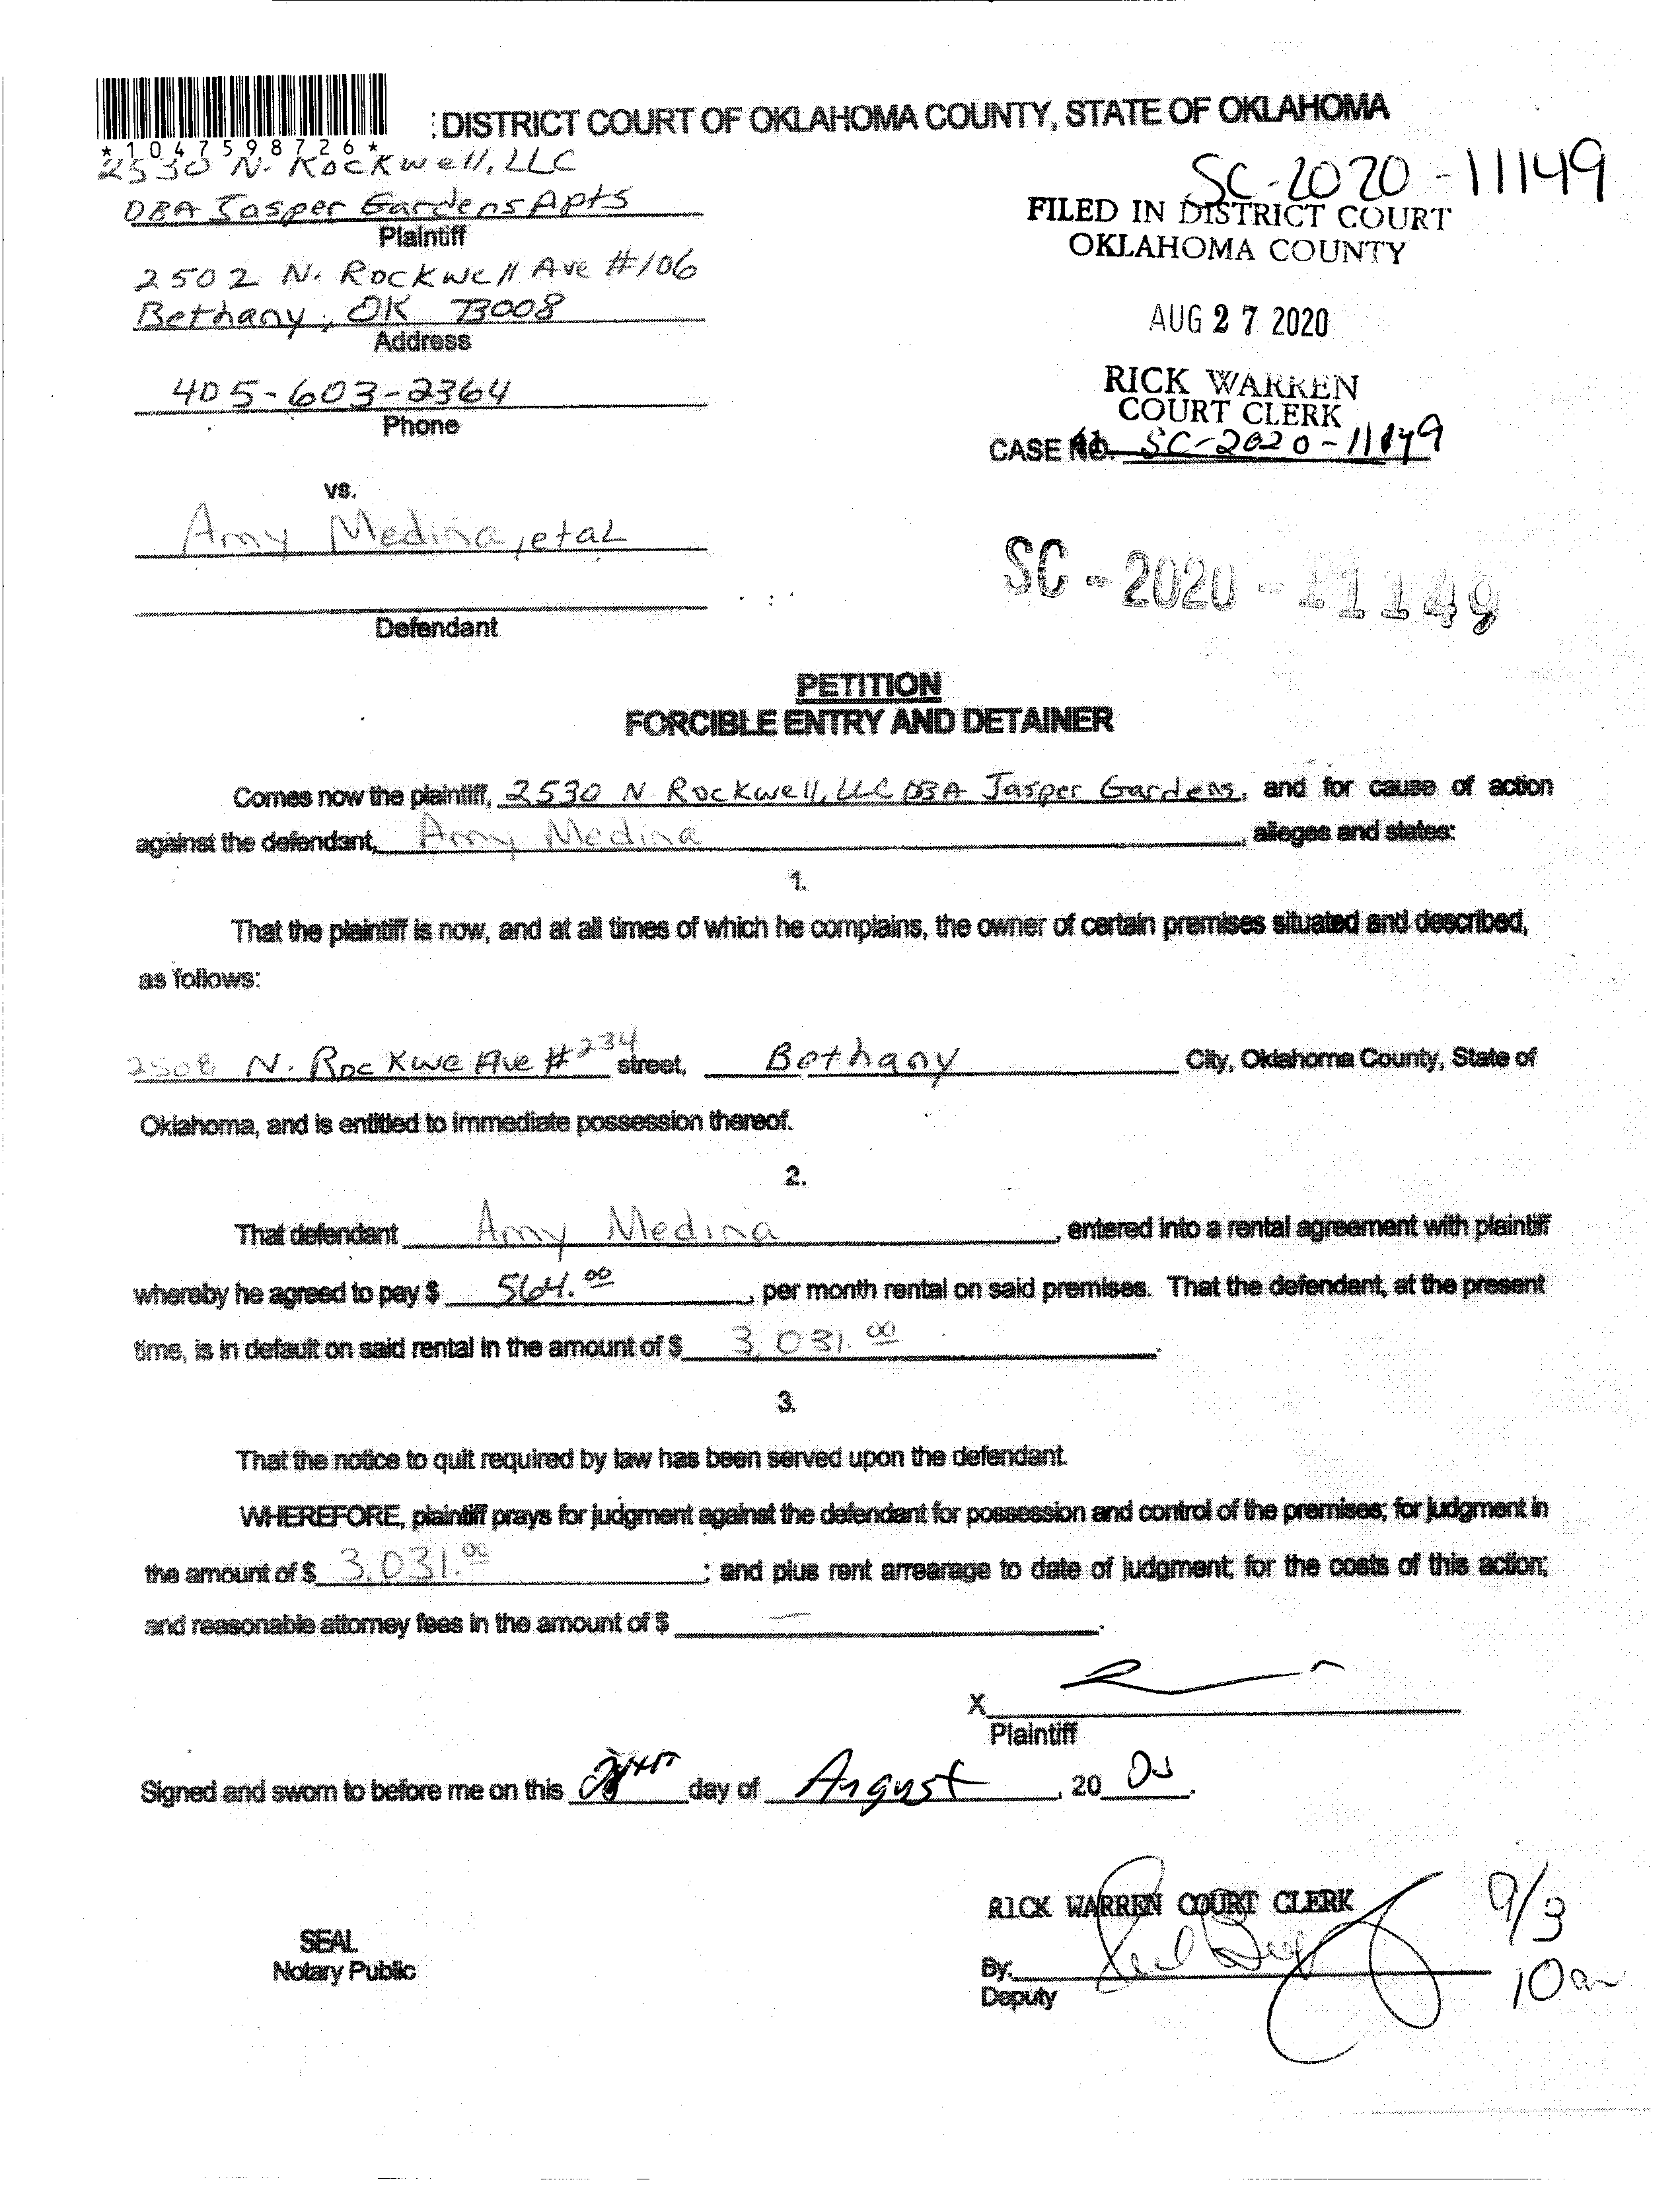 : DISTRICT COURT OF OKLAHOMA COUNTY, STATE OF OKLAHOMA
*1047598726*
2530 N. Rockwell, LLC
SC-2020-11149
DBA Jasper Gardens Apts
Plaintiff
FILED IN DISTRICT COURT
OKLAHOMA COUNTY
2502 N. Rockwell Ave #106
Bethany, OK 73008
Address
AUG 27 2020
405-603-2364
Phone
RICK WARREN
COURT CLERK
CASE NO. SC-2020-11149
vs.
Amy Medina, etal
SC-2020-11149
Defendant
PETITION
FORCIBLE ENTRY AND DETAINER
Comes now the plaintiff, 2530 N Rockwell, LLC DBA Jasper Gardens, and for cause of action
against the defendant, Amy Medina, alleges and states:
1.
That the plaintiff is now, and at all times of which he complains, the owner of certain premises situated and described,
as follows:
2508 N. Rockwe Ave #234 street, Bethany City, Oklahoma County, State of
Oklahoma, and is entitled to immediate possession thereof.
2.
That defendant Amy Medina, entered into a rental agreement with plaintiff
whereby he agreed to pay $ 564.00, per month rental on said premises. That the defendant, at the present
time, is in default on said rental in the amount of $ 3,031.00.
3.
That the notice to quit required by law has been served upon the defendant.
WHEREFORE, plaintiff prays for judgment against the defendant for possession and control of the premises; for judgment in
the amount of $ 3,031.00; and plus rent arrearage to date of judgment; for the costs of this action;
and reasonable attorney fees in the amount of $ —.
X
Plaintiff
Signed and sworn to before me on this day of August, 20
RICK WARREN COURT CLERK
9/3
SEAL
Notary Public
By:
Deputy
10am